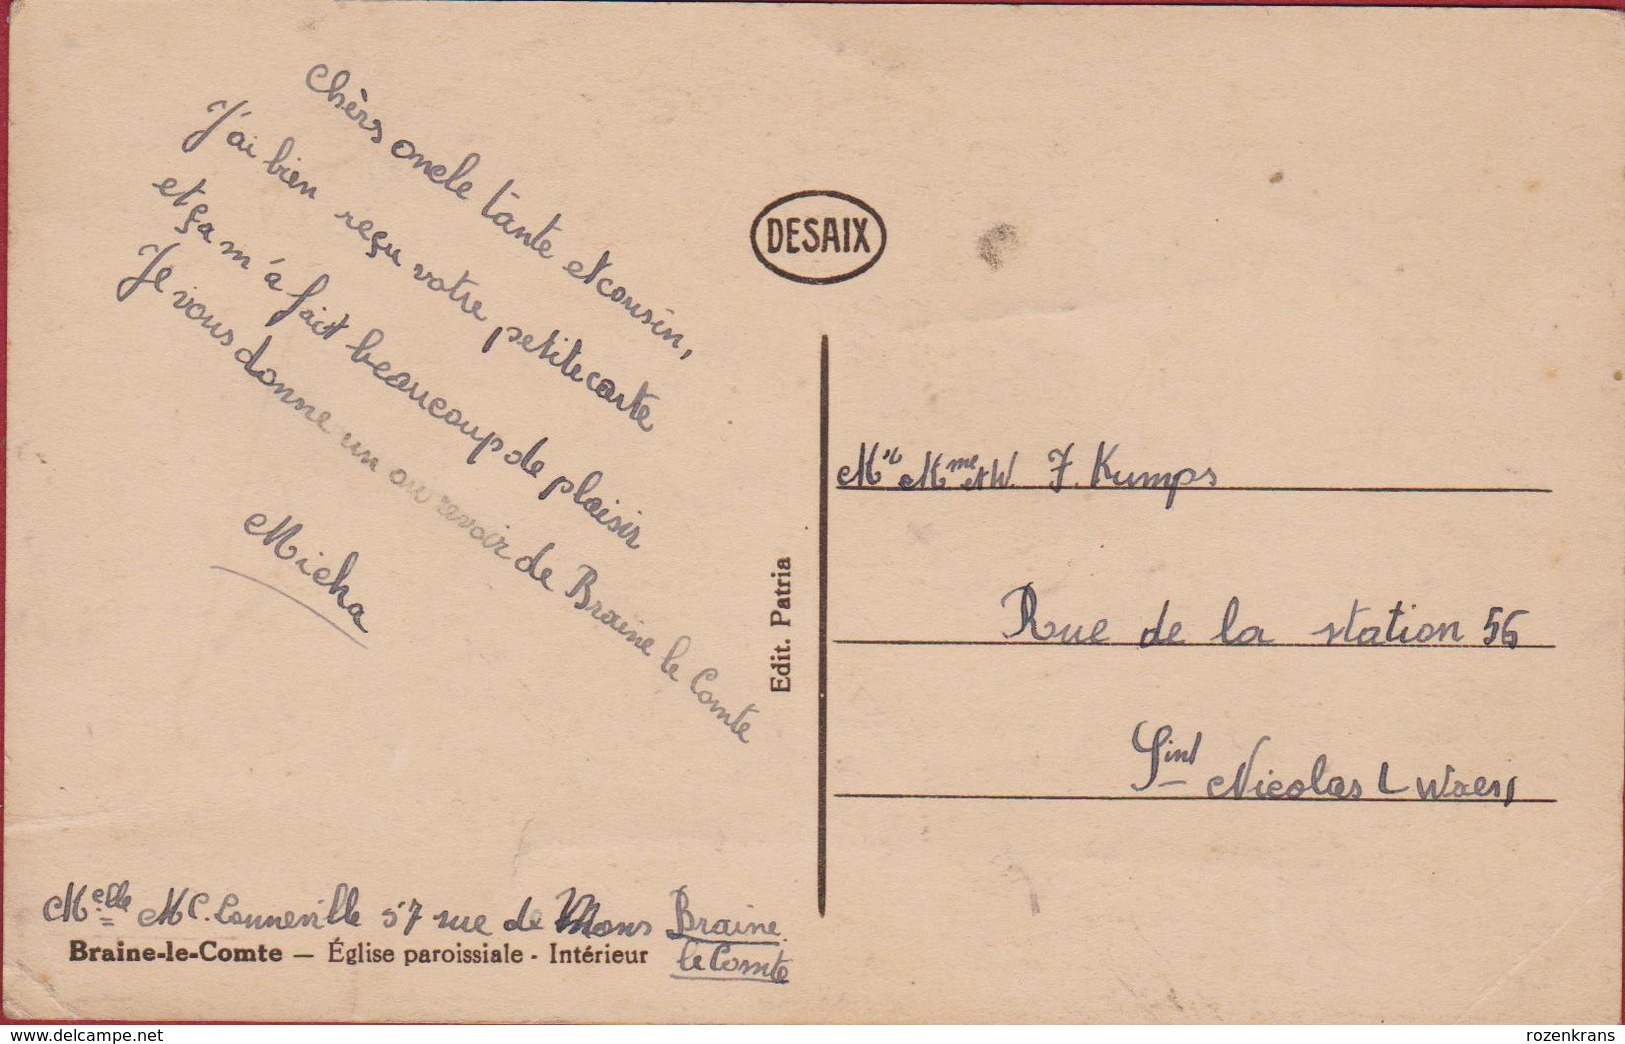 Chèrs oncle tante et cousin,
J'ai bien reçu votre petite carte
et ça m'a fait beaucoup de plaisir
Je vous donne un au revoir de Braine le Comte
Micha
Melle MC. Lonneville 57 rue de Mons Braine
le Comte
Braine-le-Comte — Église paroissiale - Intérieur
DESAIX
Edit. Patria
Mme et W. F. Kumps
Rue de la station 56
Sint Nicolas Waes
www.delcampe.net
rozenkrans